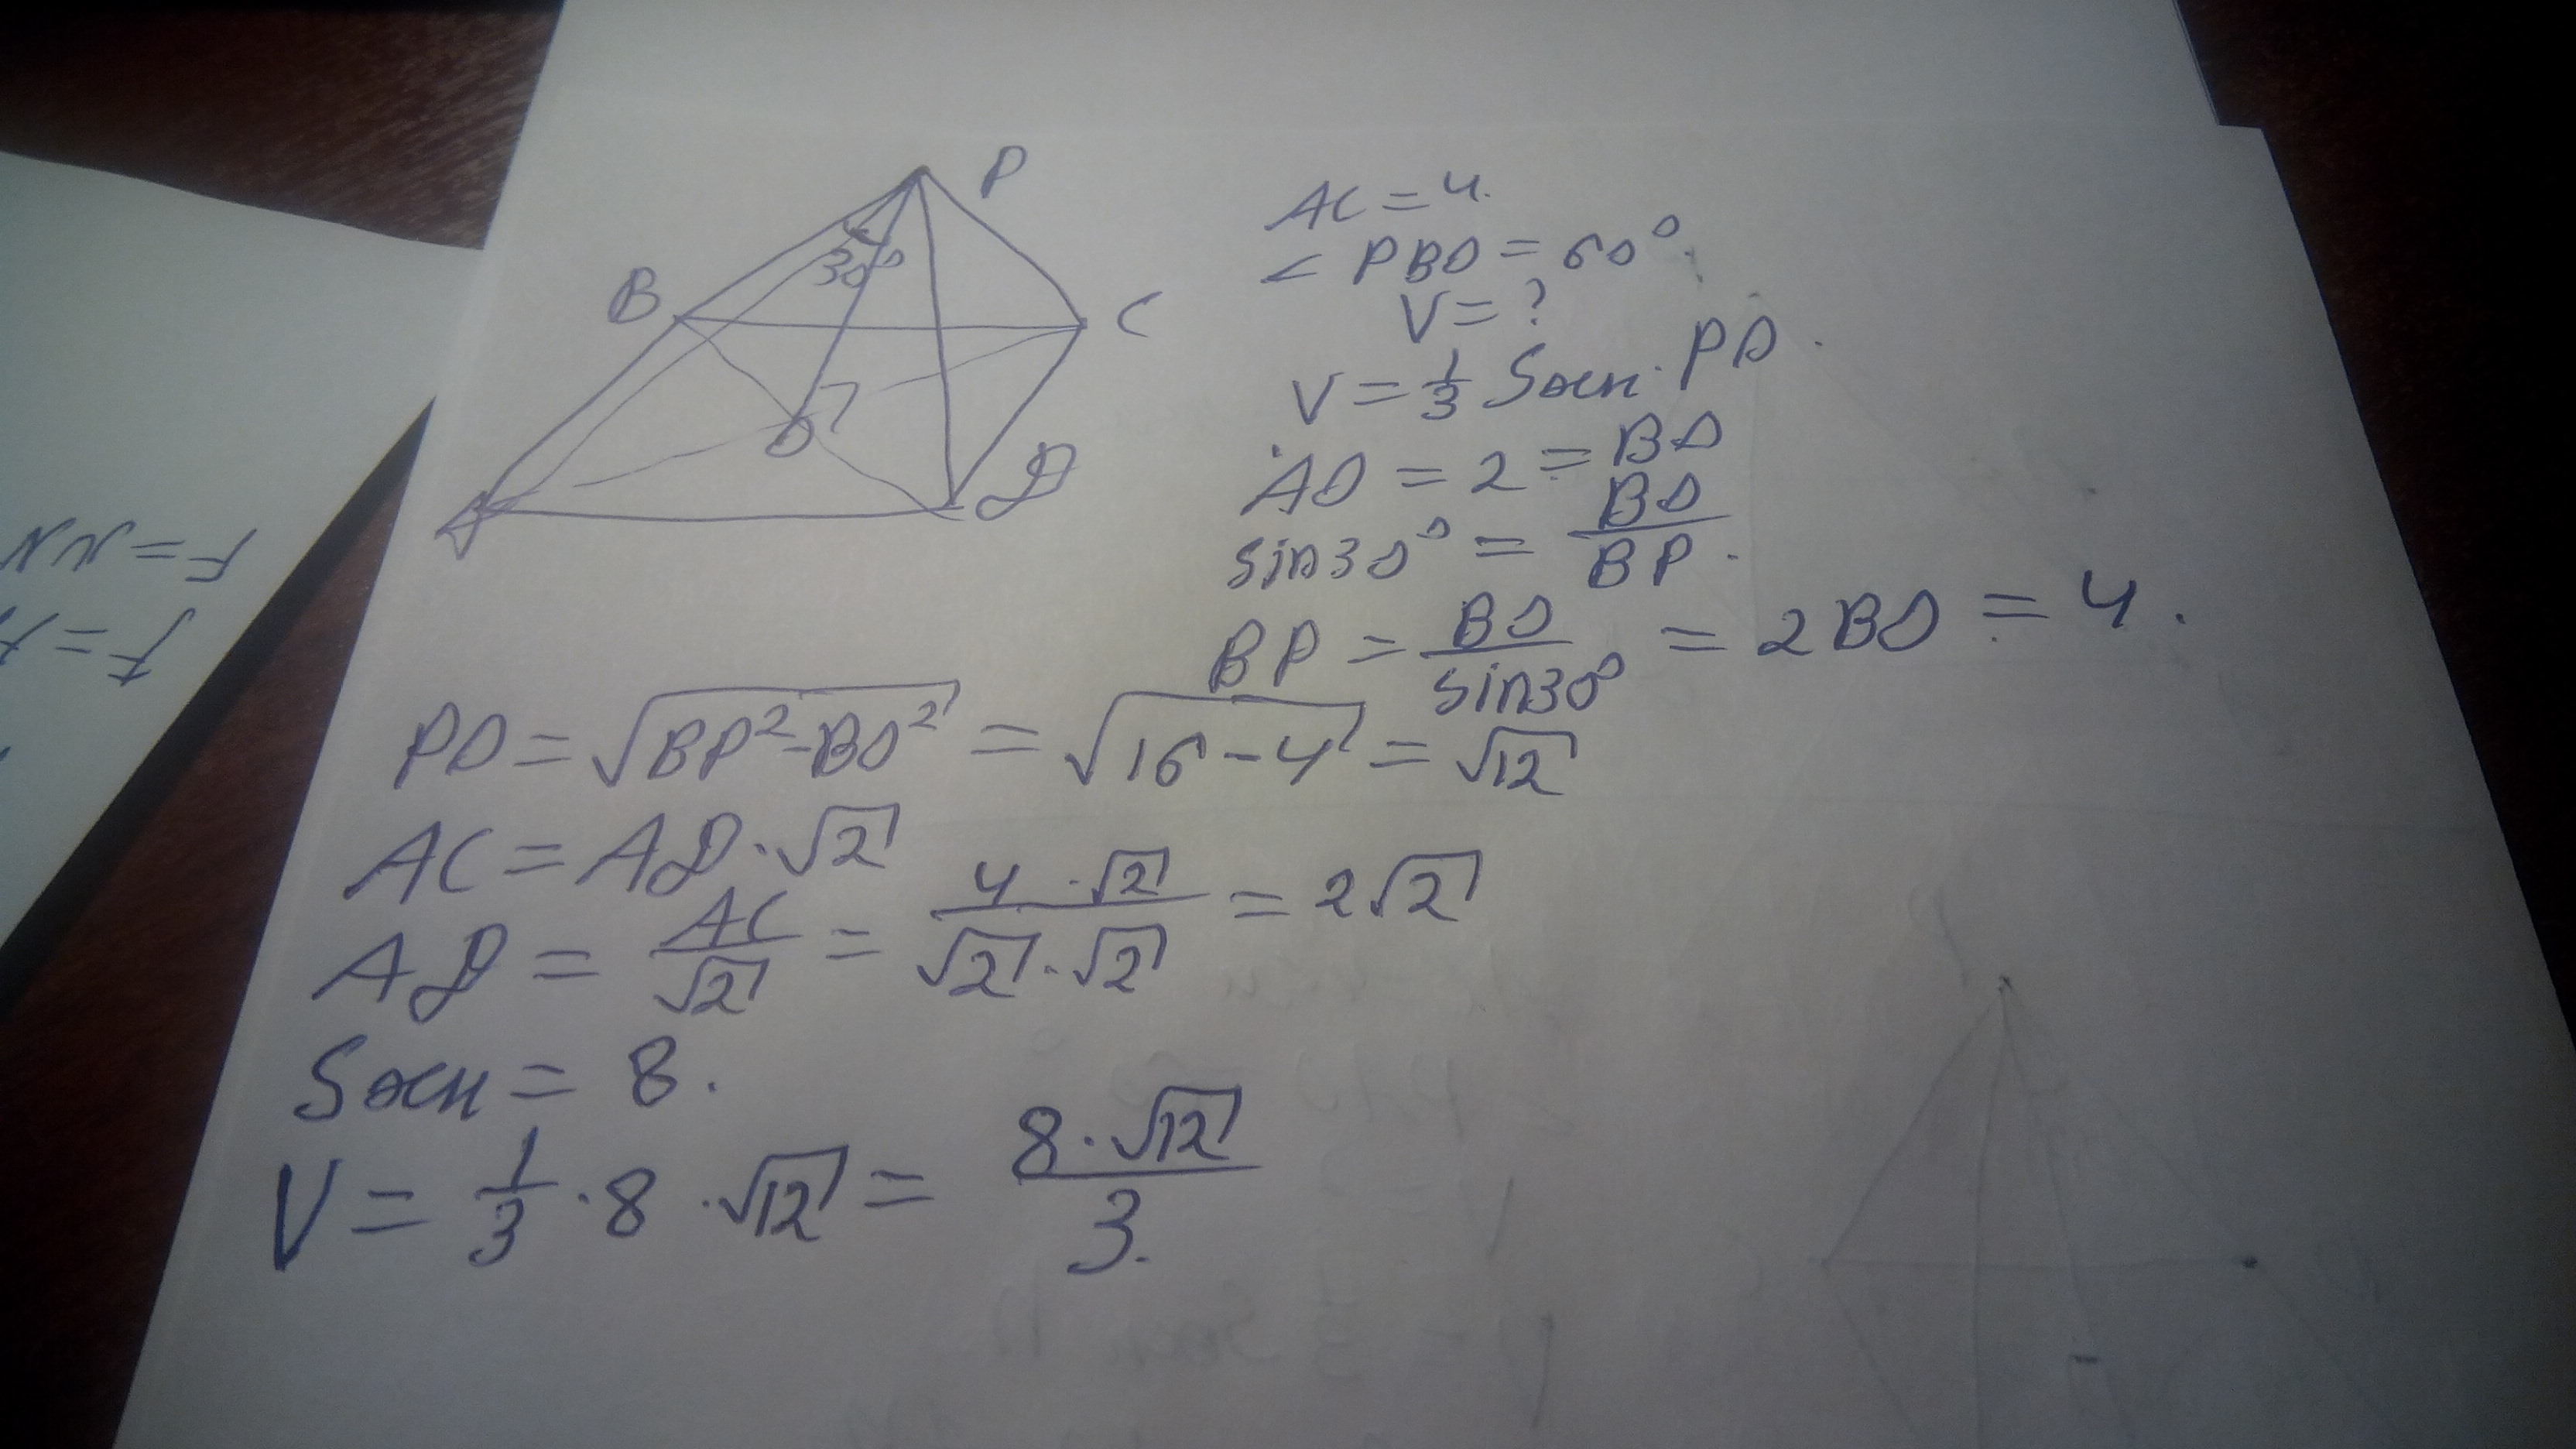 P
B
C
30°
O
A
D
AC = 4.
< PBO = 60°.
V = ?
V = 1/3 Sосн. PO.
AO = 2 = BO
sin30° = BO/BP.
BP = BO/sin30° = 2BO = 4.
PO = √(BP² - BO²) = √(16 - 4) = √12
AC = AD · √2
AD = AC/√2 = (4 · √2)/(√2 · √2) = 2√2
Sосн = 8.
V = 1/3 · 8 · √12 = (8 · √12)/3.
F = μN